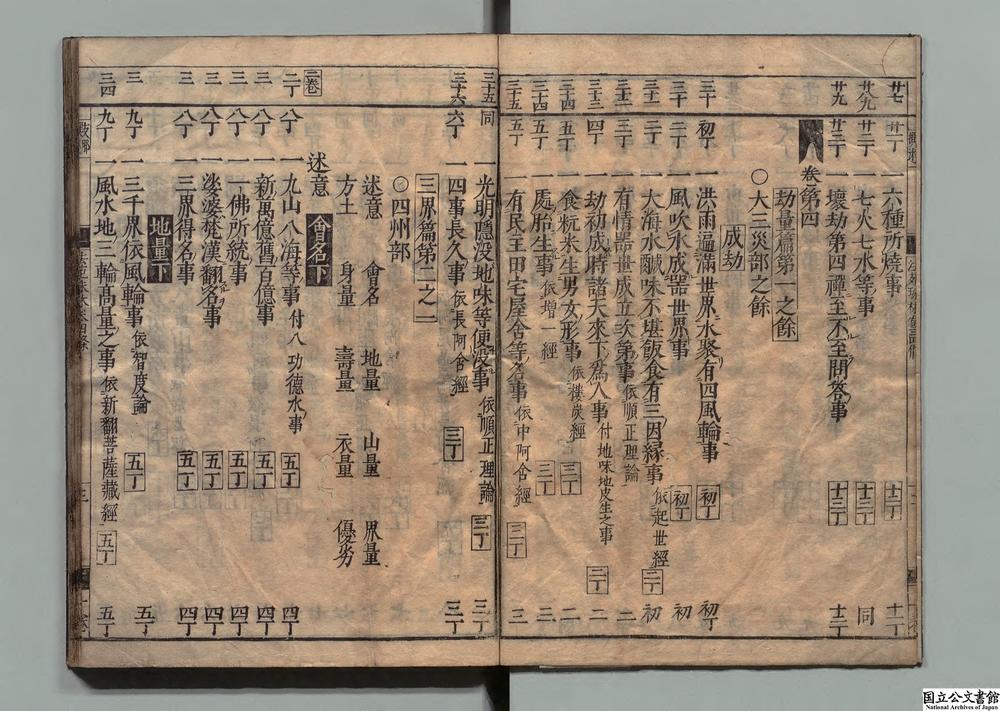 廿七 廿一丁 一六種所燒事 十二丁 十一丁
廿九 廿二丁 一七火七水等事 十三丁 同
廿九 廿三丁 一壞劫第四禪至不至問答事 十三丁 十二丁
卷第四
劫量篇第一之餘
○大三災部之餘
成劫
三十 初丁 一洪雨遍滿世界水聚有四風輪事 初丁 初丁
三十 二丁 一風吹水成器世界事 初丁 初
三十一 二丁 一大海水鹹味不堪飯食有三因緣事 依起世經 二丁 初
三十二 三丁 一有情器世成立次第事 依順正理論 二
三十三 四丁 一劫初成時諸天來下為人事 付地味地皮生之事 二丁 二
三十四 五丁 一食粳米生男女形事 依樓炭經 三丁 二
三十四 五丁 一處胎生事 依增一經 三丁 三
三十五 五丁 一有民主田宅屋舍等名事 依中阿含經 三丁 三
三十五 同 一光明隱没地味等便没事 依順正理論 三丁 三丁
三十六 六丁 一四事長久事 依長阿含經 三丁 三丁
三界篇第二之一
○四州部
述意 會名 地量 山量 界量
方土 身量 壽量 衣量 優劣
述意 會名下
二卷
二丁 八丁 一九山八海等事 付八功德水事 五丁 四丁
三 八丁 一新萬億舊百億事 五丁 四丁
三 八丁 一一佛所統事 五丁 四丁
三 八丁 一娑婆梵漢翻名事 五丁 四丁
三 八丁 一三界得名事 五丁 四丁
地量下
三 九丁 一三千界依風輪事 依智度論 五丁 五丁
三四 九丁 一風水地三輪高量之事 依新翻菩薩藏經 五丁 五丁
国立公文書館
National Archives of Japan